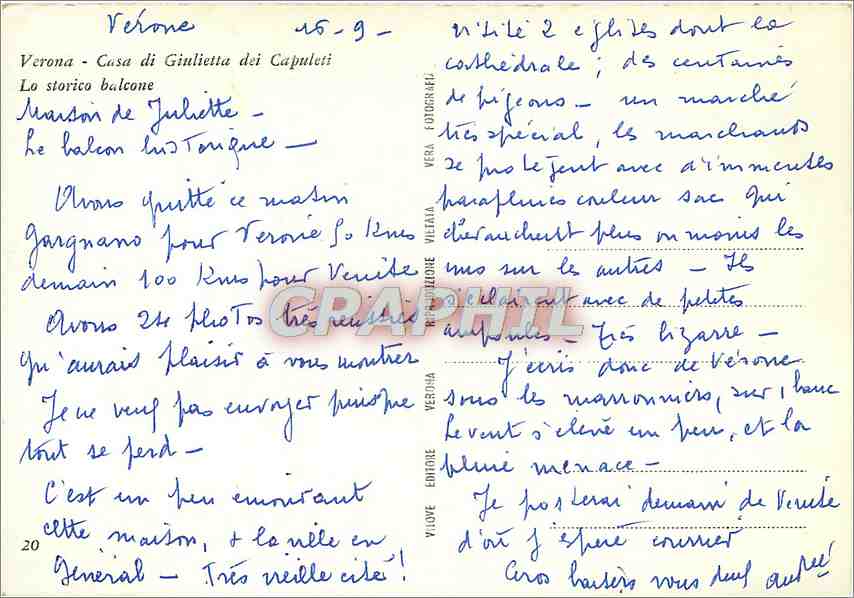 Vérone 15-9-
Verona - Casa di Giulietta dei Capuleti
Lo storico balcone
Maison de Juliette -
Le balcon historique -
Avons quitté ce matin
Gargnano pour Verone 50 Kms
demain 100 Kms pour Venise
Avons 24 photos très réussies
qu'aurais plaisir à vous montrer
Je ne veux pas envoyer puisque
tout se perd -
C'est un peu émouvant
cette maison, & la ville en
Général - Très vieille cité!
20
VERA FOTOGRAFIA
RIPRODUZIONE VIETATA
VERONA
EDITORE
CPARAPHIL
visité 2 églises dont la
cathédrale; des centaines
de pigeons - un marché
très spécial, les marchands
se protègent avec d'immenses
parapluies couleur sac qui
chevauchent plus ou moins les
uns sur les autres - Ils
s'éclairent avec de petites
ampoules - très bizarre -
J'écris donc de Vérone
sous les marronniers, sur 1 banc
Le vent s'élève un peu, et la
pluie menace -
Je posterai demain de Venise
d'où j'espère courrier
Gros baisers vous deux Andrée